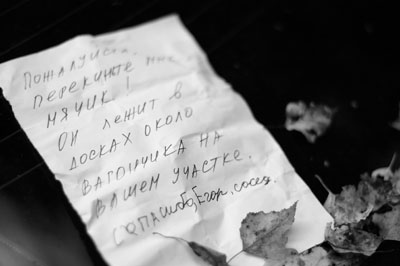 Пожалуйста,
перекиньте мне
мячик!
Он лежит в
досках около
вагончика на
вашем участке.
Спасибо, Егор, сосед.